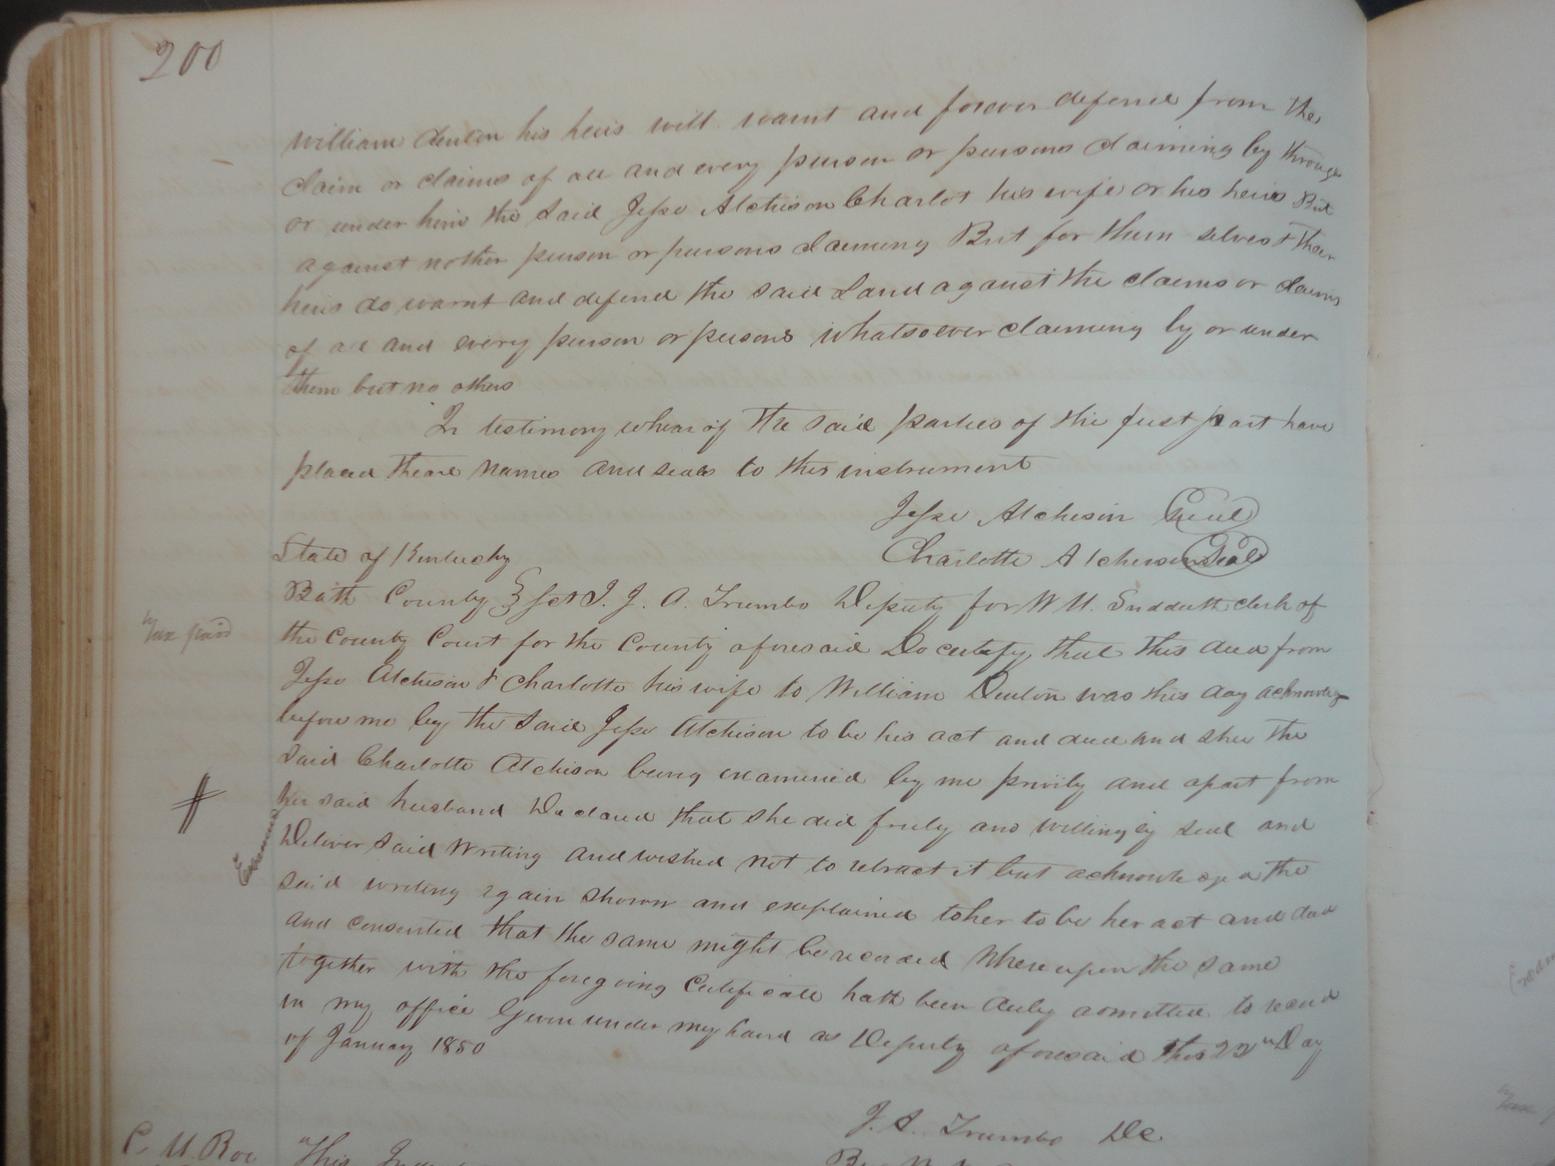 200
William Denton his heirs will warnt and forever defend from the
claim or claims of all and every person or persons claiming by through
or under him the said Jesse Atchison Charlot his wife or his heirs But
against nother person or persons claiming But for them selves & their
heirs do warnt and defend the said Land against the claims or claims
of all and every person or persons whatsoever claiming by or under
them but no others
In testimony whear of the said parties of the first part have
placed theare names and seals to this instrument
Jesse Atchison Seal
Charlotte Atcherson Seal
State of Kentucky
Bath County } Sct I. J. A. Trumbo Deputy for W M. Sudduth clerk of
Tax paid
the County Court for the County aforesaid Do certify that this deed from
Jesse Atchison & Charlotte his wife to William Denton was this day acknowledg
before me by the said Jesse Atchison to be his act and deed and she the
said Charlotte Atchison being examined by me privily and apart from
her said husband Declared that she did freely and willingly seal and
Examined
Deliver said Writing and wished not to retract it but acknowledged the
said writing again shown and explained to her to be her act and deed
and consented that the same might be recorded Whereupon the same
together with the foregoing Certificate hath been duly admitted to record
in my office Given under my hand as Deputy aforesaid this 22n Day
of January 1850
J. A. Trumbo DC
C. M. Roe "This